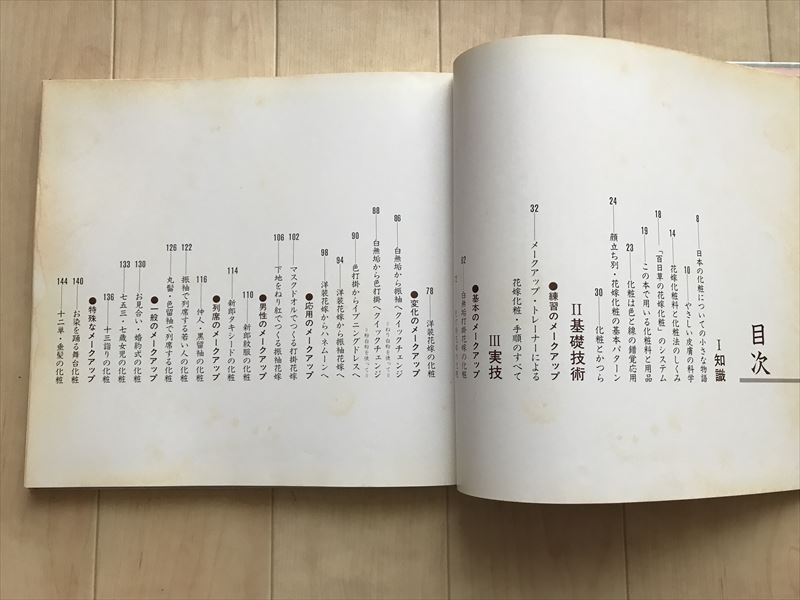 目次
Ⅰ 知識
8——日本の化粧についての小さな物語
10——やさしい皮膚の科学
14——花嫁化粧料と化粧法のしくみ
18——「百日草の花嫁化粧」のシステム
19——この本で用いる化粧料と用品
23——化粧は色と線の錯覚応用
24——顔立ち別・花嫁化粧の基本パターン
30——化粧とかつら
Ⅱ 基礎技術
●練習のメークアップ
32——メークアップ・トレーナーによる
花嫁化粧・手順のすべて
Ⅲ 実技
●基本のメークアップ
62——白無垢打掛花嫁の化粧
78——洋装花嫁の化粧
●変化のメークアップ
86——白無垢から振袖へクイックチェンジ
88——白無垢から色打掛へクイックチェンジ
90——色打掛からイブニングドレスへ
94——洋装花嫁から振袖花嫁へ
98——洋装花嫁からハネムーンへ
●応用のメークアップ
102——マスクドオルでつくる打掛花嫁
106——下地をねり紅でつくる振袖花嫁
●男性のメークアップ
110——新郎紋服の化粧
114——新郎タキシードの化粧
●列席のメークアップ
116——仲人・黒留袖の化粧
122——振袖で列席する若い人の化粧
126——丸髷・色留袖で列席する化粧
●一般のメークアップ
130——お見合い・婚約式の化粧
133——七五三・七歳女児の化粧
136——十三詣りの化粧
●特殊なメークアップ
140——お染を踊る舞台化粧
144——十二単・垂髪の化粧